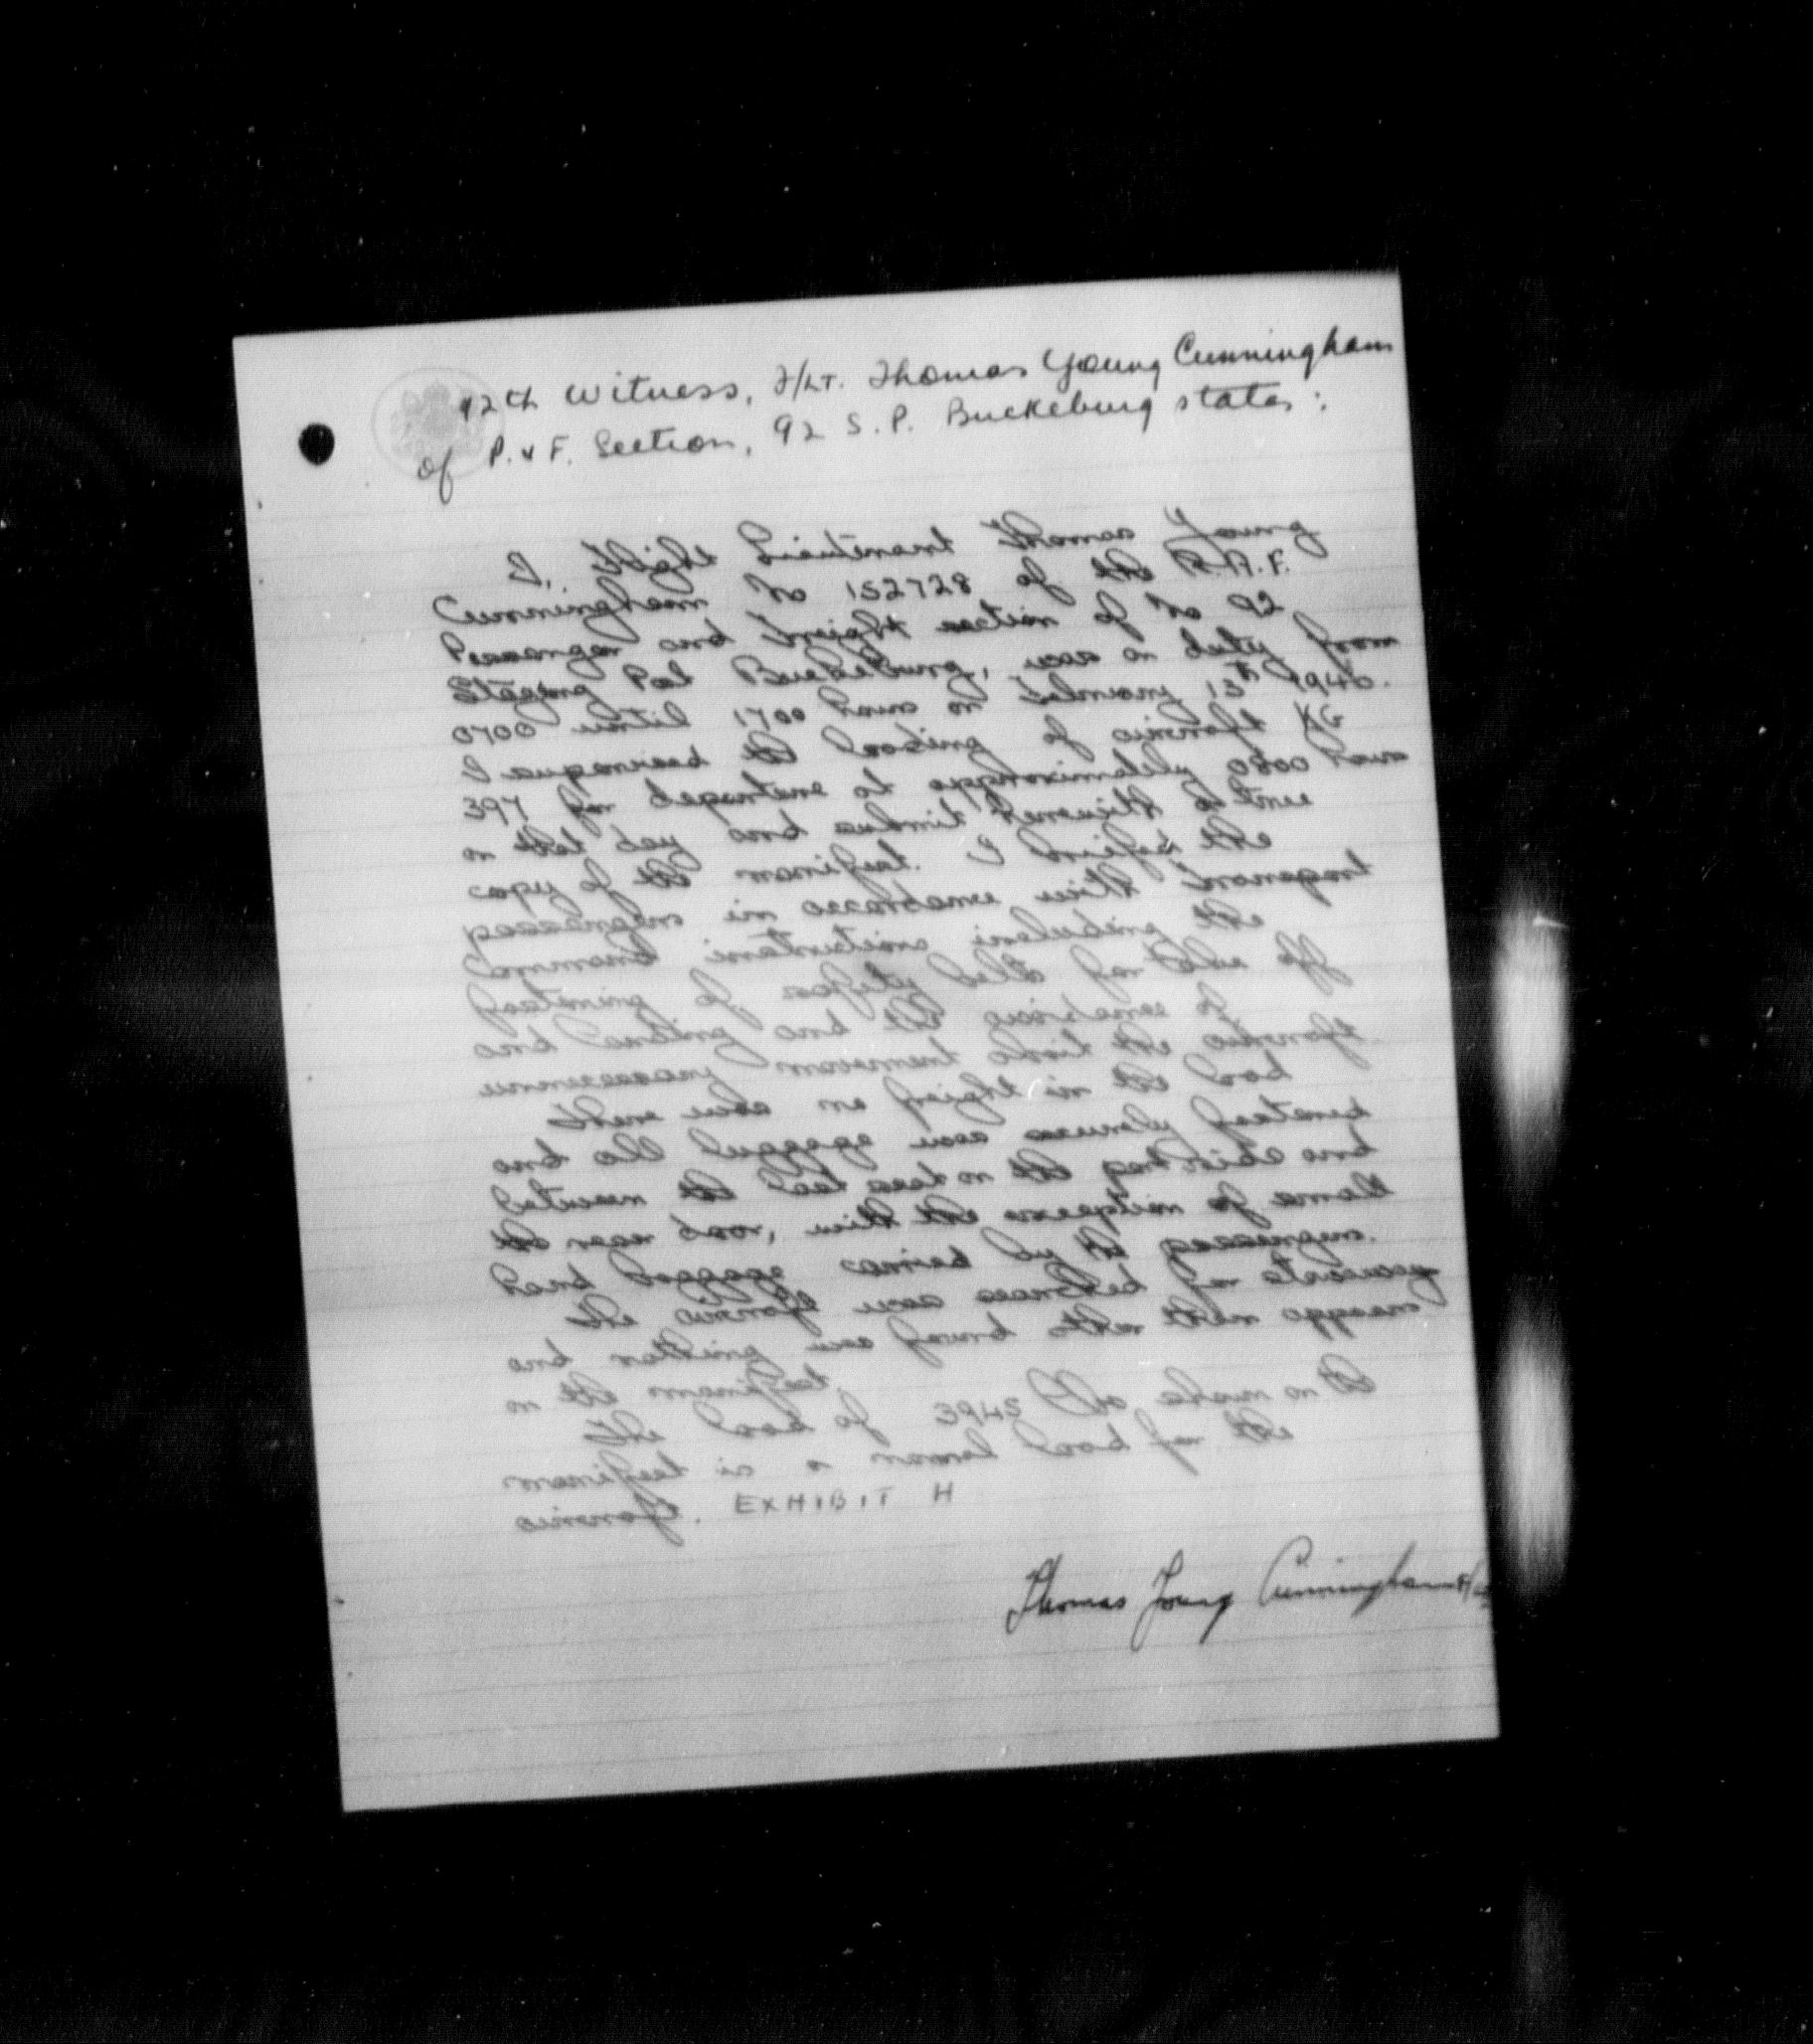 12th Witness, F/Lt. Thomas Young Cunningham
of P. & F. Section, 92 S.P. Buckeburg states:
I, Flight Lieutenant Thomas Young
Cunningham No 152728 of the R.A.F.
Passenger and Freight section of No 92
Staging Post Buckeburg, was on duty from
0700 until 1700 hours on February 13th 1946.
I supervised the loading of aircraft KG
397 for departure at approximately 0800 hours
on that day and submit herewith a true
copy of the manifest. I briefed the
passengers in accordance with Transport
Command instructions including the
fastening of safety belts for take off
and landing and the avoidance of
unnecessary movement about the aircraft.
There was no freight in the load
and all luggage was securely fastened
between the last seat on the port side and
the rear door, with the exception of small
hand luggage carried by the passengers.
The aircraft was searched for stowaways
and nothing was found other than appears
on the manifest.
The load of 3943 lbs shown on the
manifest is a normal load for the
aircraft. EXHIBIT H
Thomas Young Cunningham F/Lt